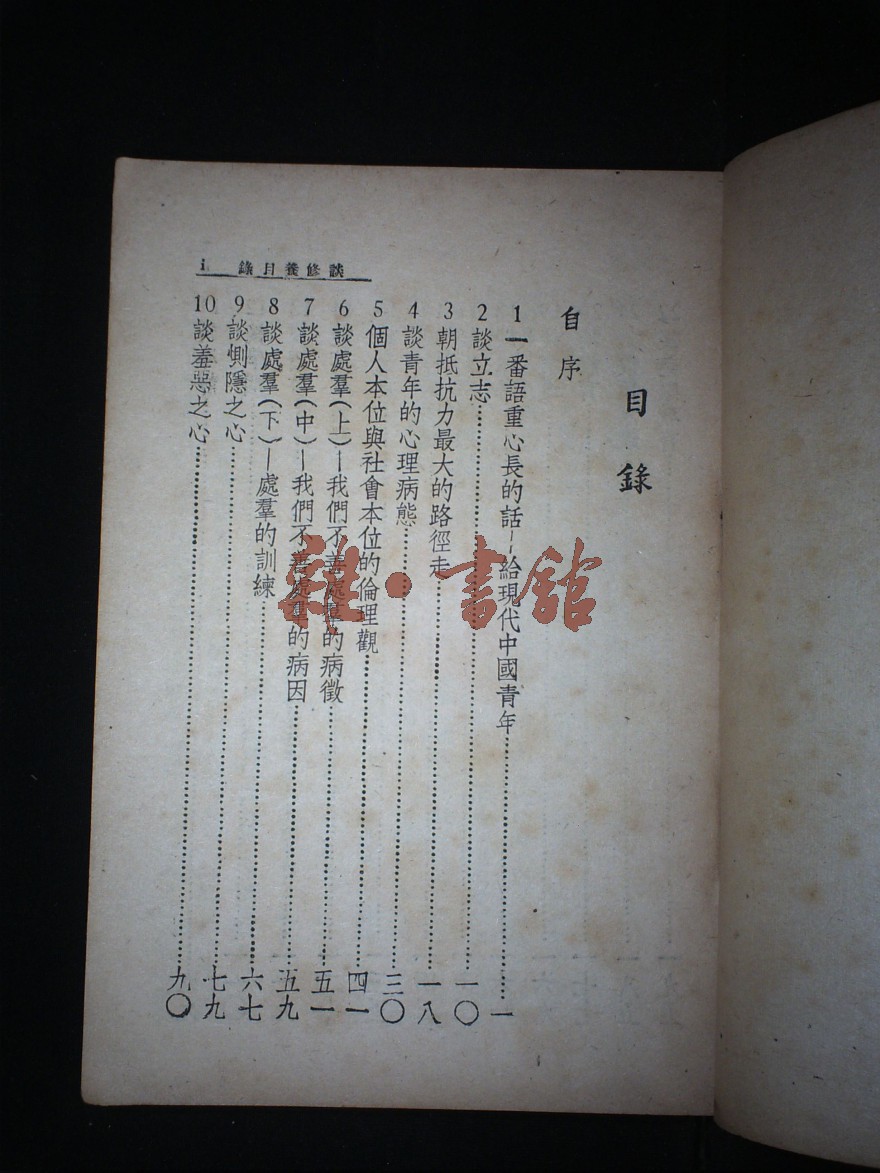 談修養目錄 i
目錄
自序
1 一番語重心長的話—給現代中國青年…………一
2 談立志…………一〇
3 朝抵抗力最大的路徑走…………一八
4 談青年的心理病態…………三〇
5 個人本位與社會本位的倫理觀…………四一
6 談處羣(上)—我們不善處羣的病徵…………五一
7 談處羣(中)—我們不善處羣的病因…………五九
8 談處羣(下)—處羣的訓練…………六七
9 談惻隱之心…………七九
10 談羞惡之心…………九〇
雜·書館